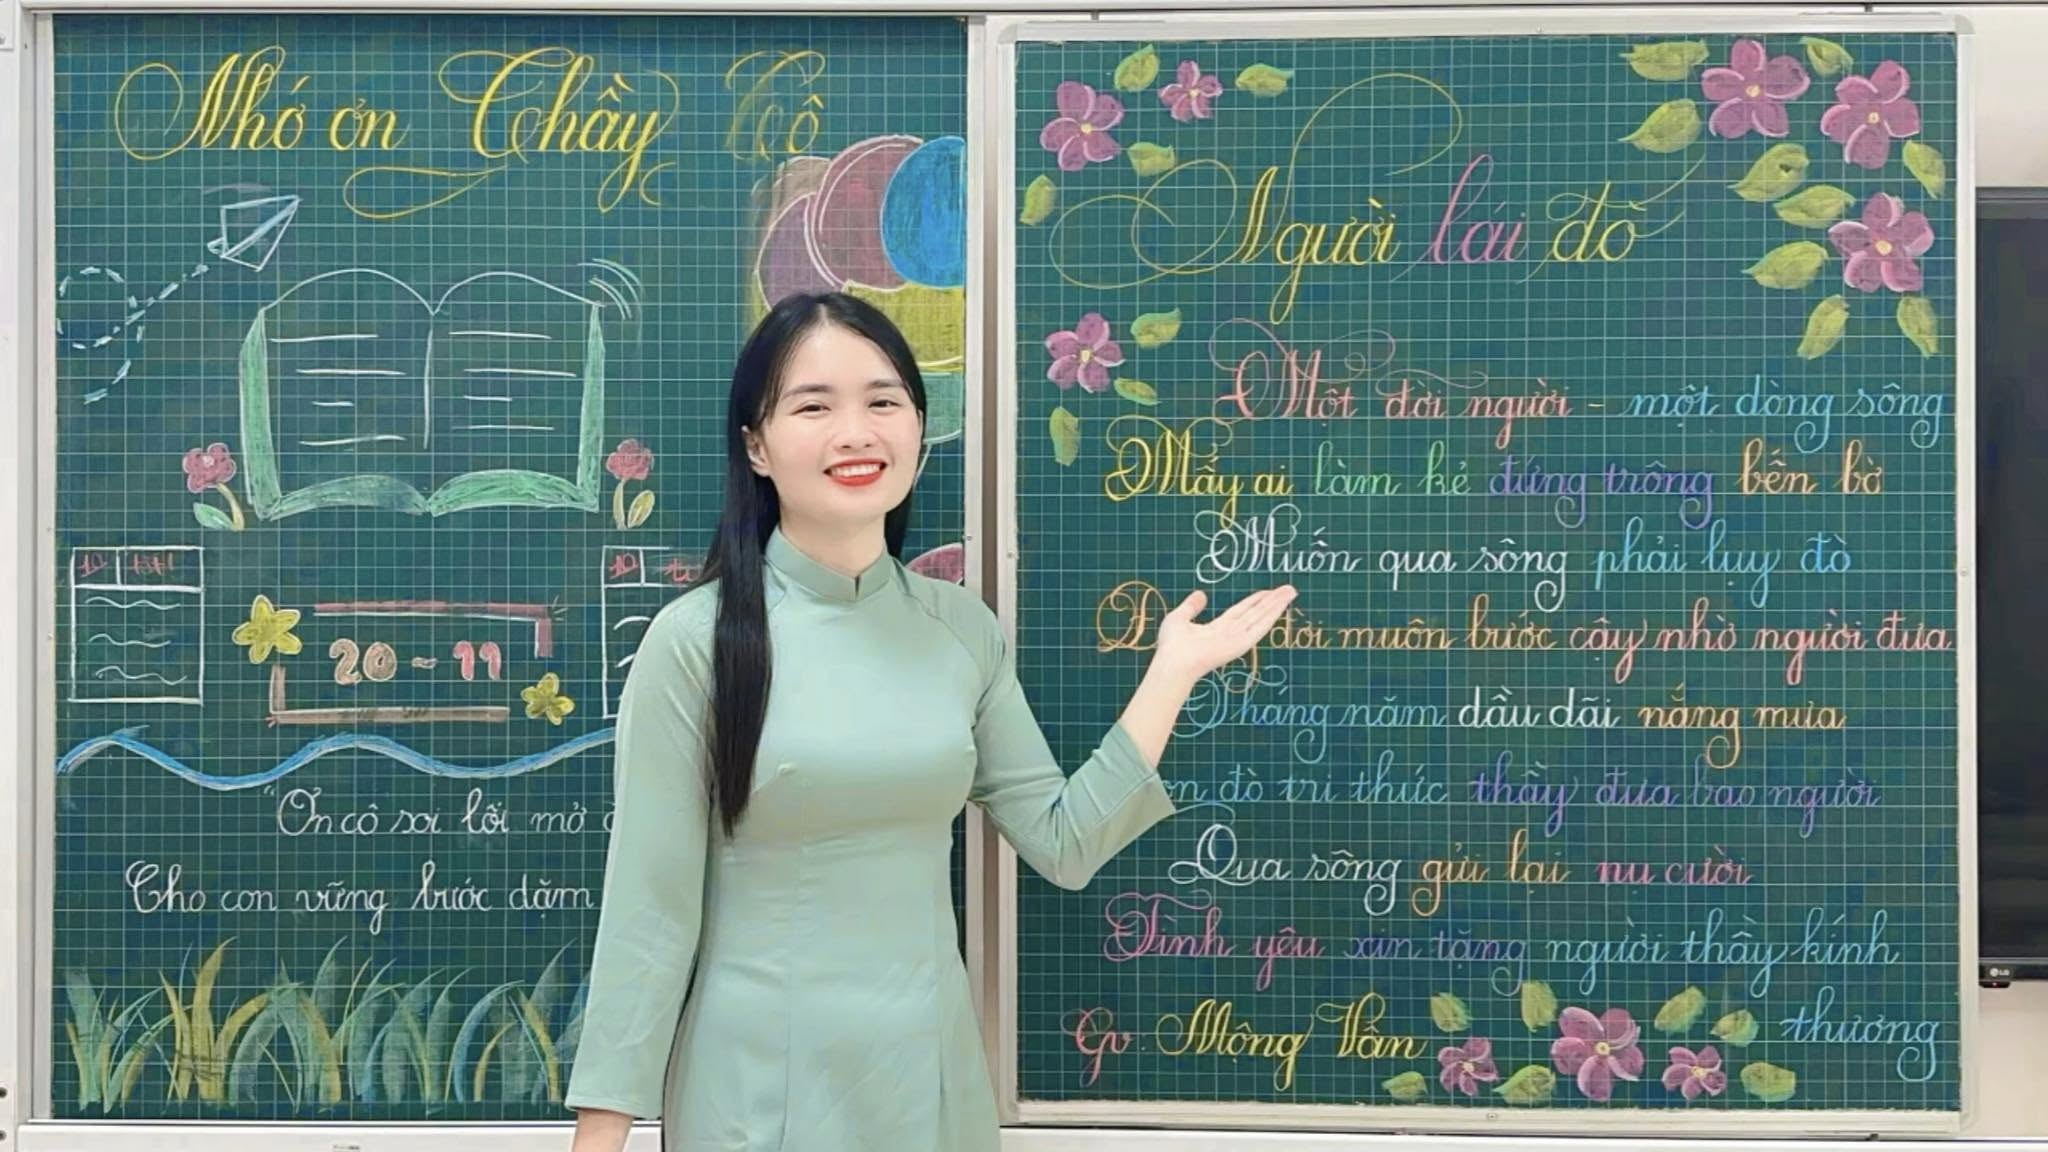 Nhớ ơn Thầy Cô
20 - 11
"Ơn cô soi lối mở
Cho con vững bước dặm
Người lái đò
Một đời người - một dòng sông
Mấy ai làm kẻ đứng trông bến bờ
Muốn qua sông phải lụy đò
đời muôn bước cậy nhờ người đưa
Tháng năm dầu dãi nắng mưa
đò tri thức thầy đưa bao người
Qua sông gửi lại nụ cười
Tình yêu xin tặng người thầy kính
thương
Gv: Mộng Vân
LG